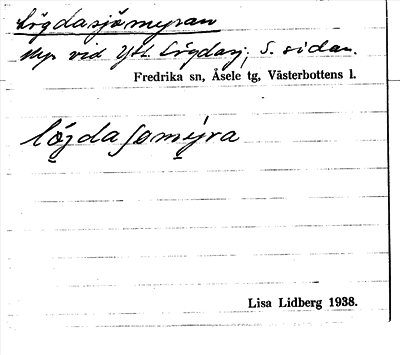 Lögdasjömyran
Myr vid Ytt. Lögdasj., S. sidan.
Fredrika sn, Åsele tg, Västerbottens l.
Lisa Lidberg 1938.